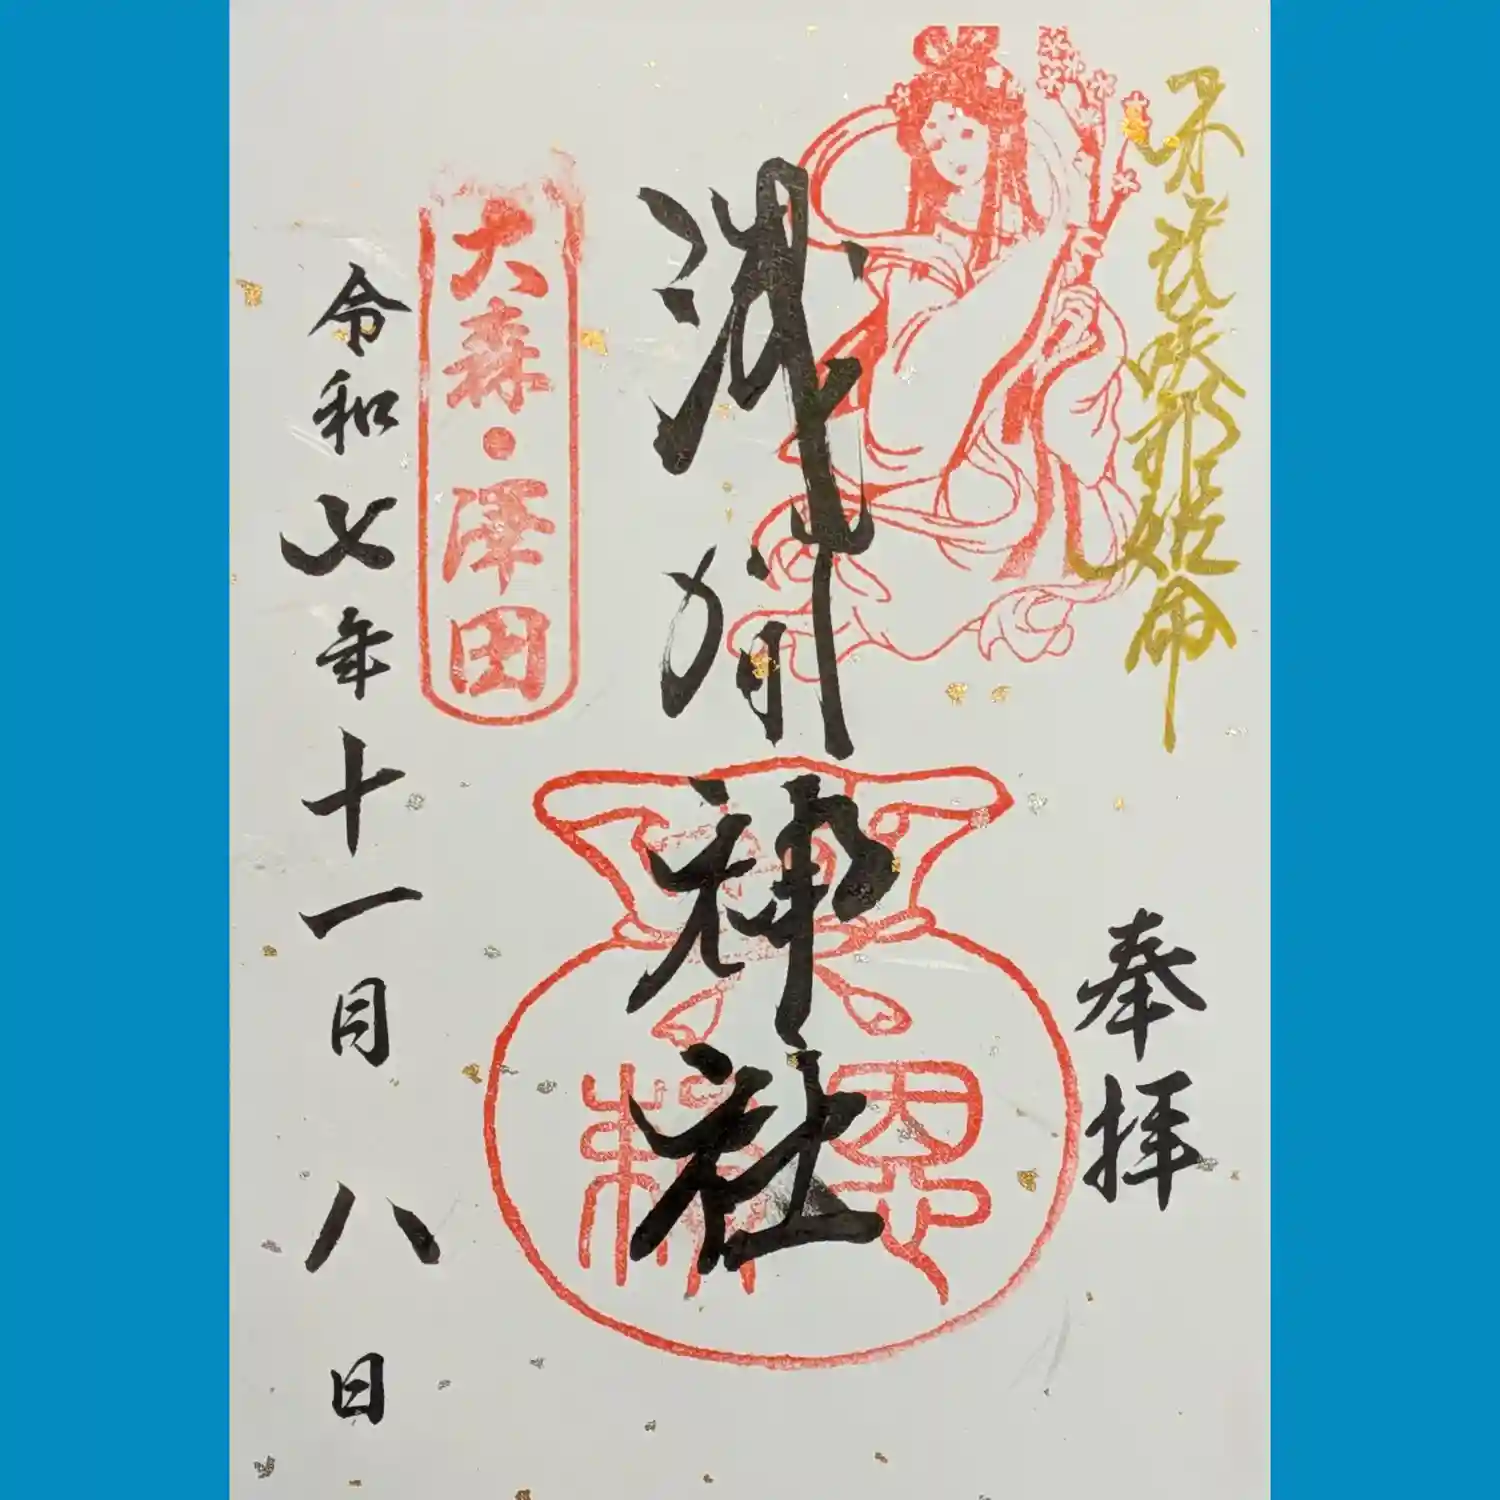 木花咲耶姫命
奉拝
浅間神社
恩
大森・澤田
令和七年十一月八日